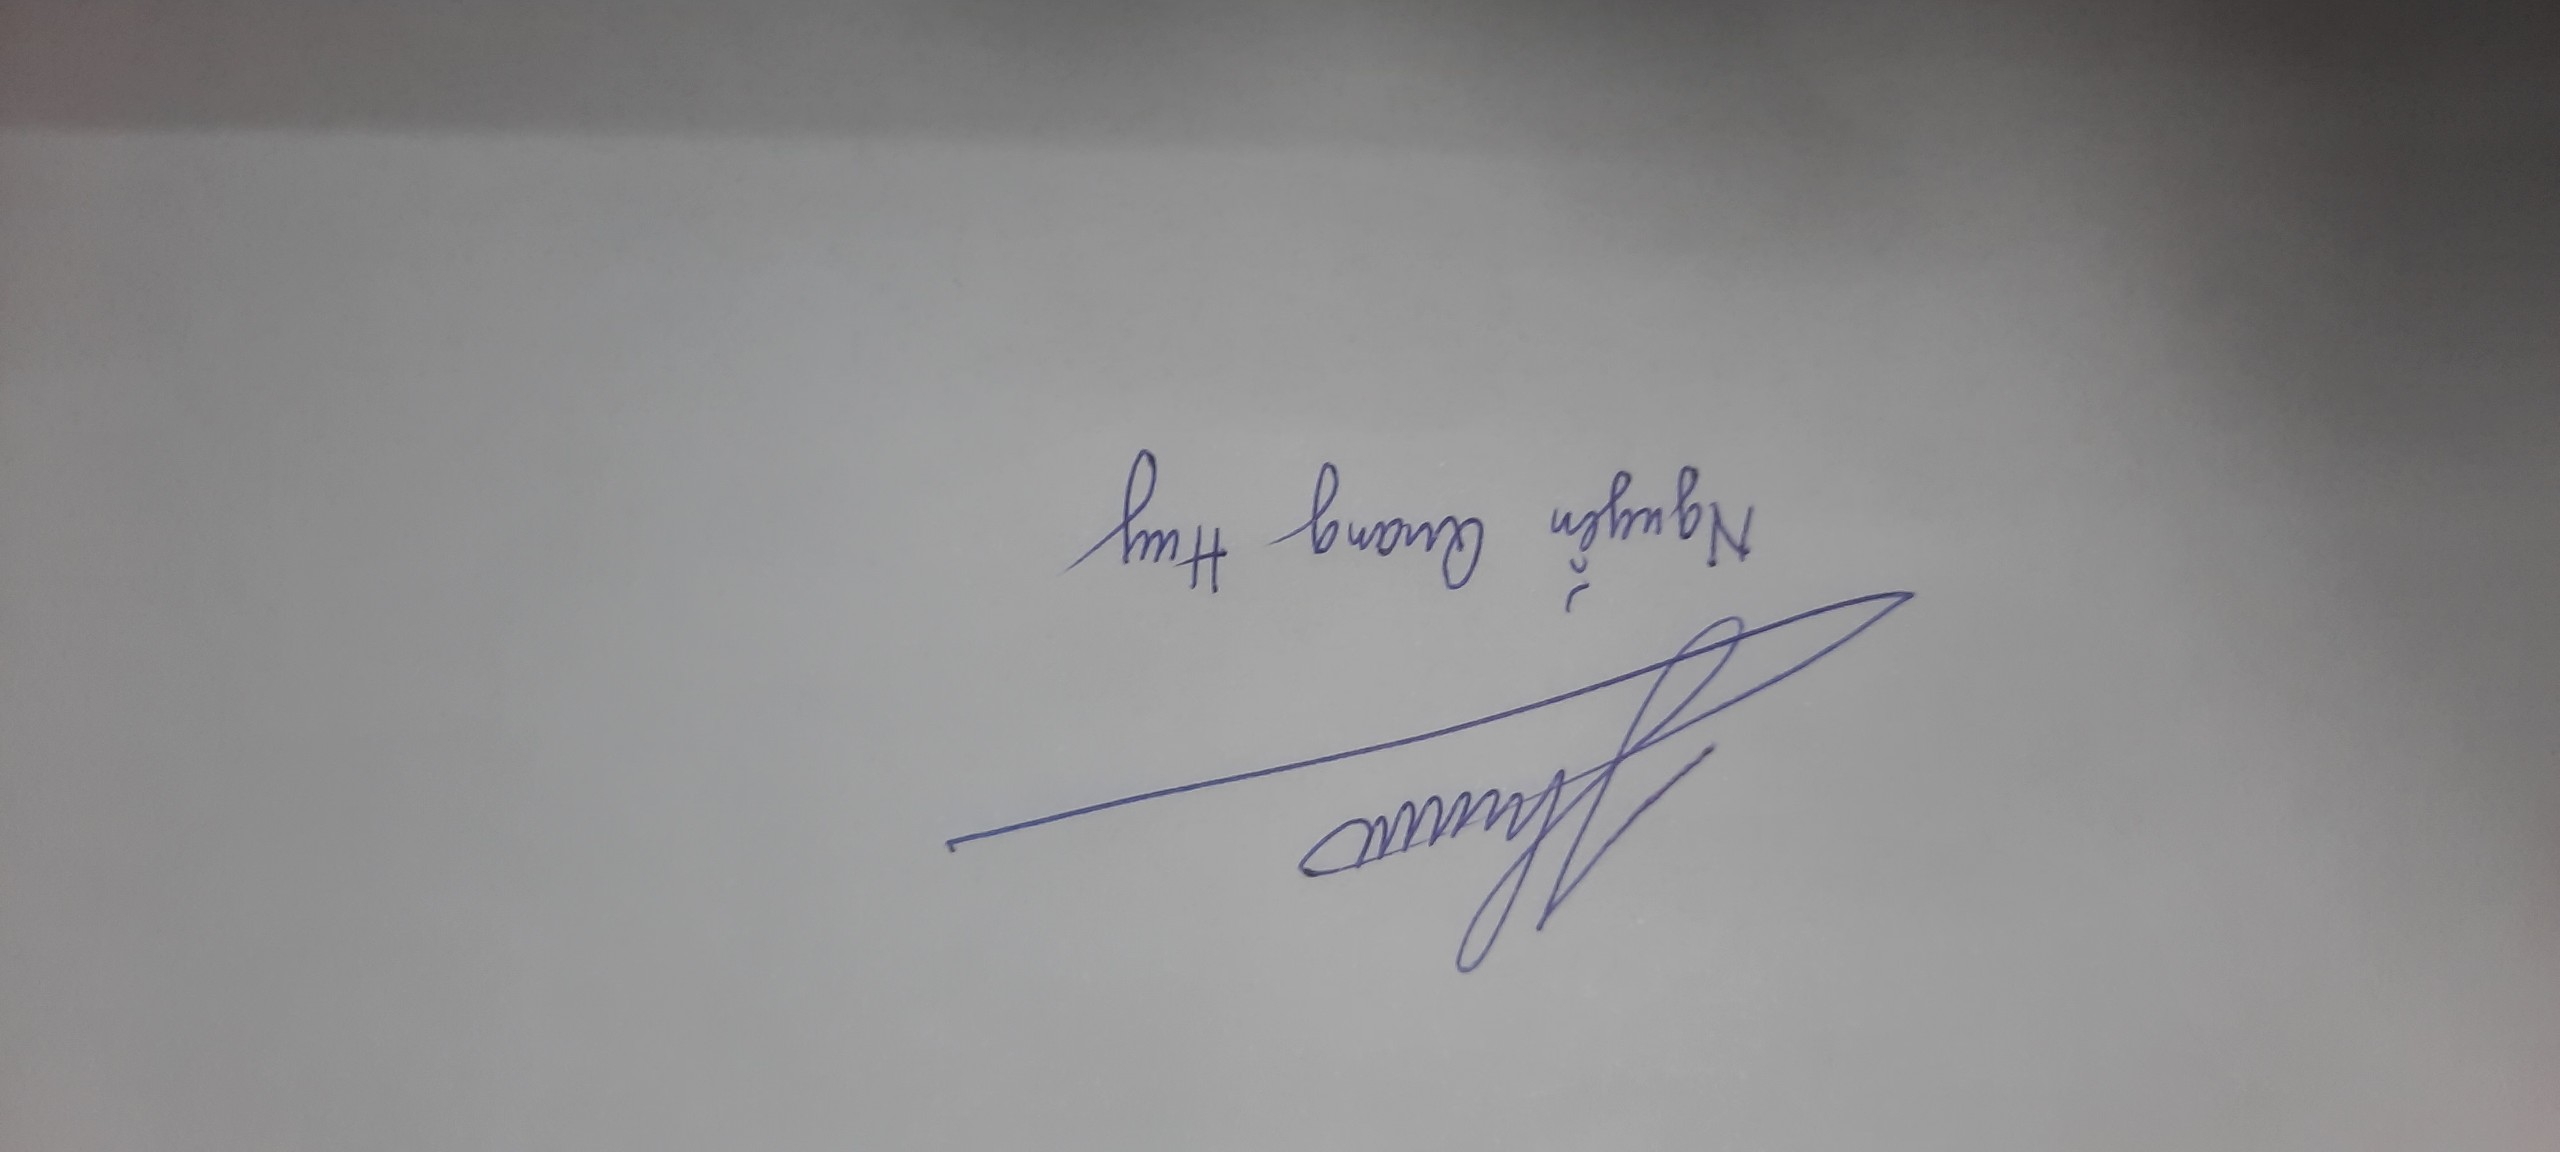 Nguyễn Quang Huy